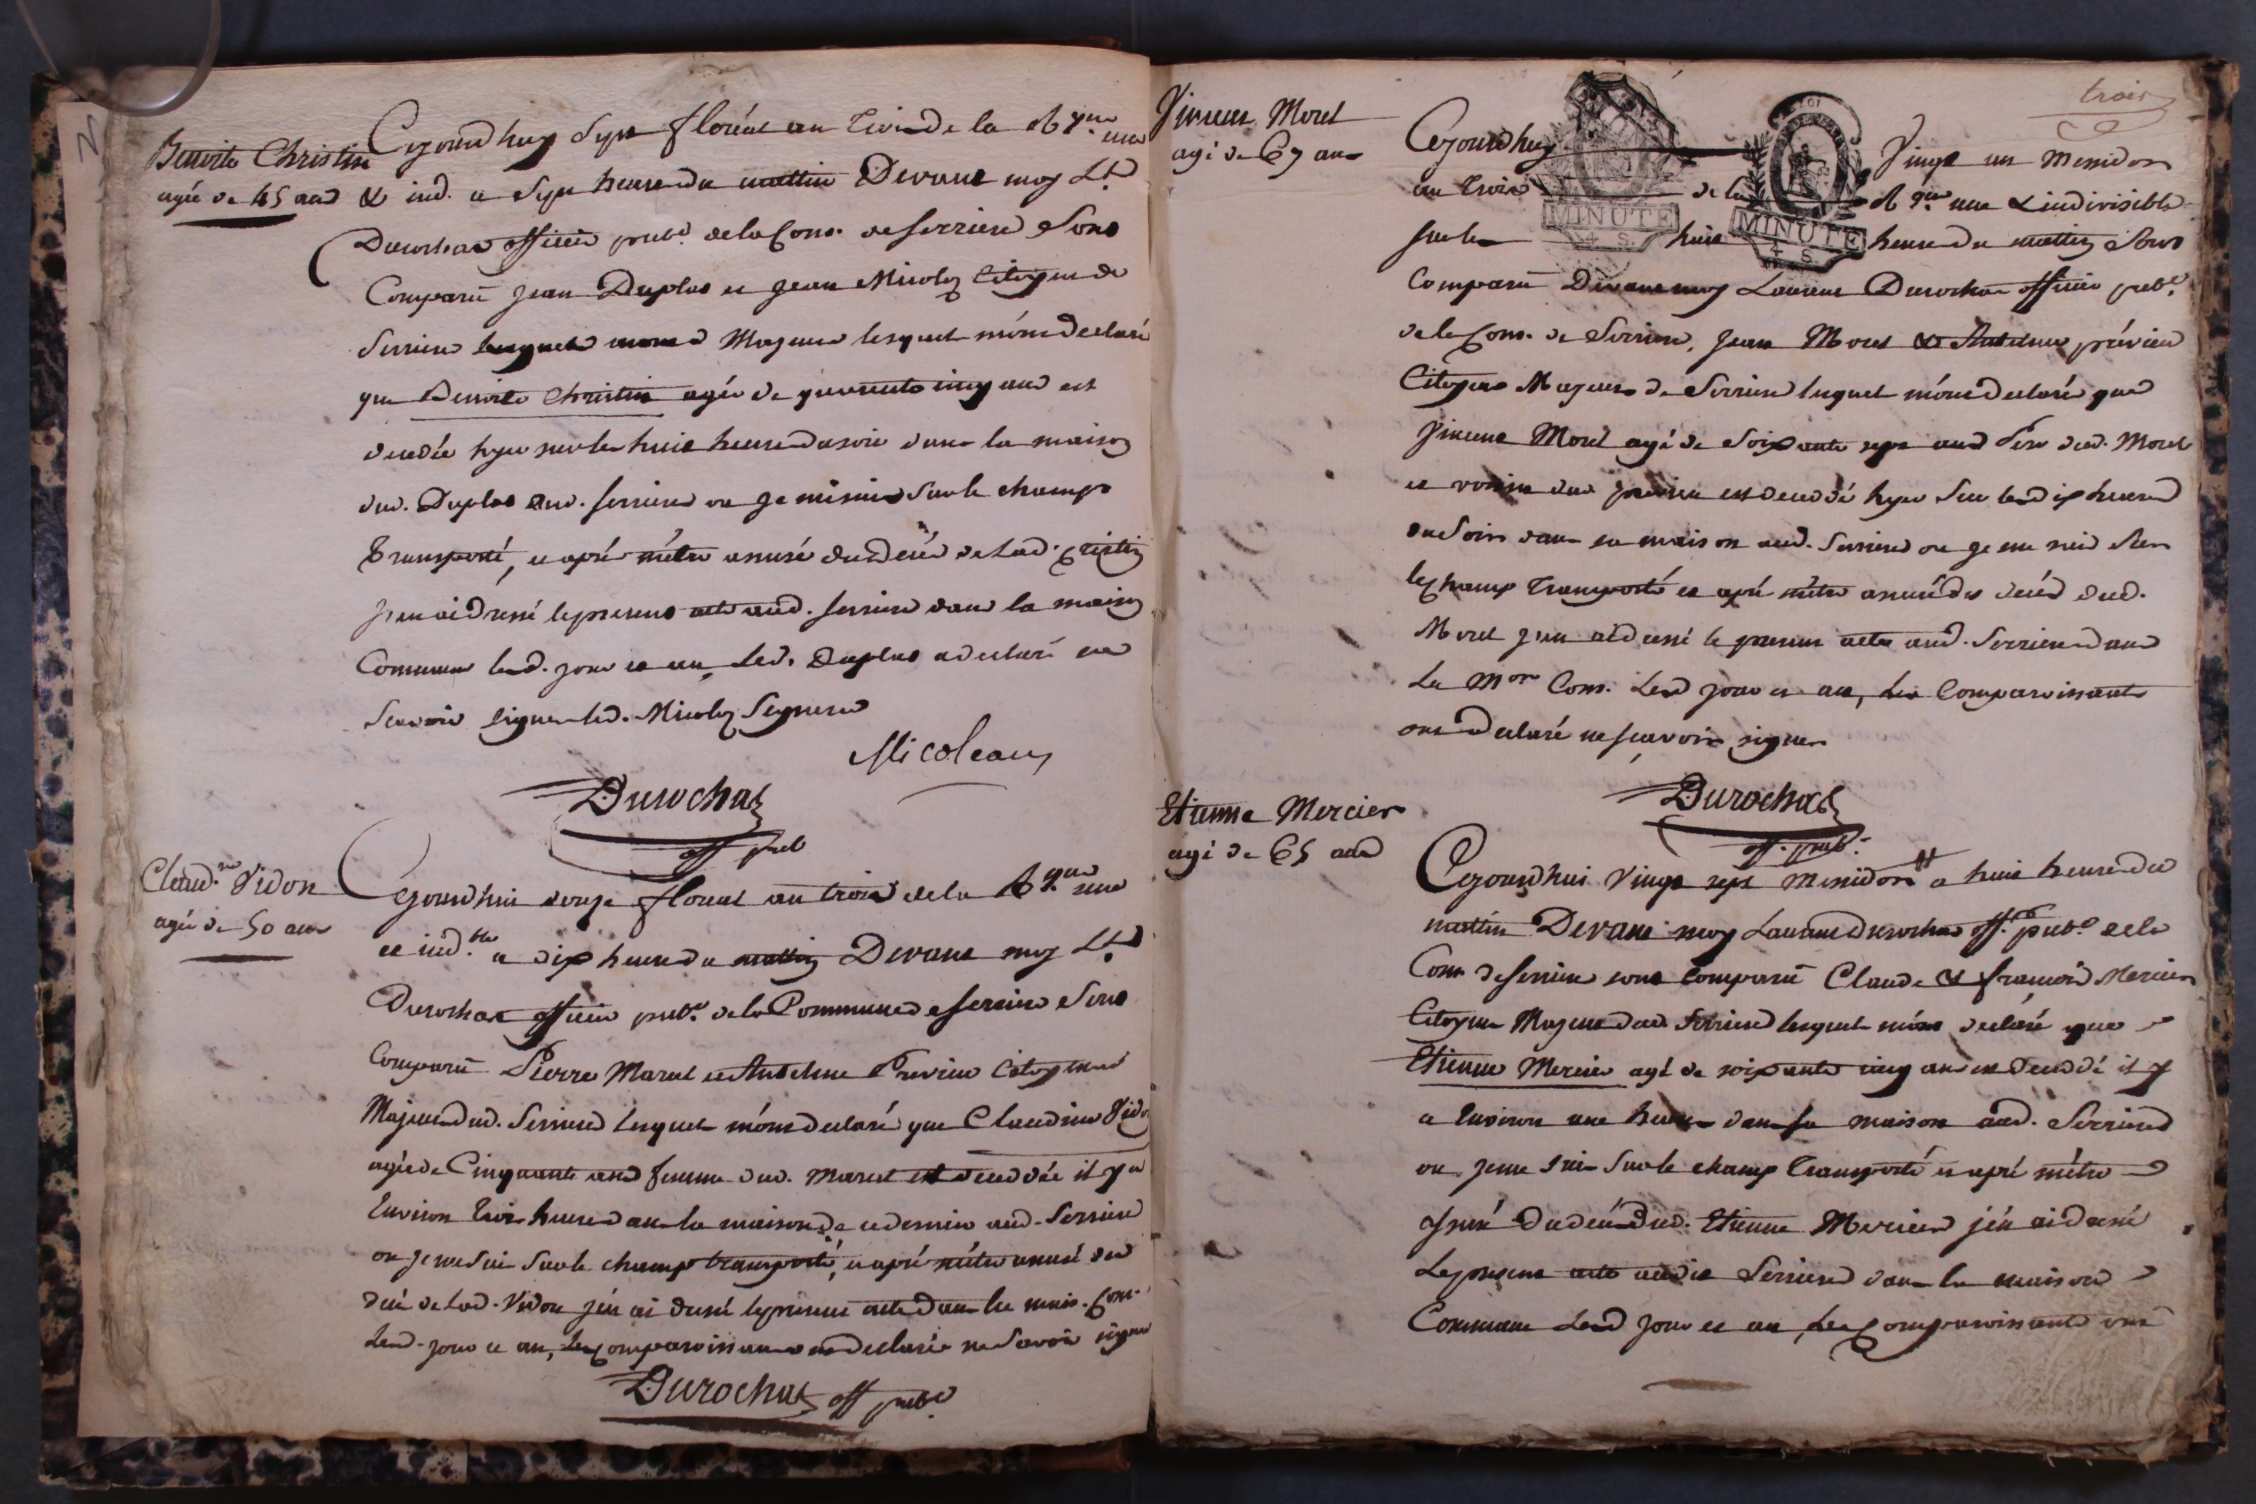 Benoite Christin
agée de 45 ans
Cejourdhuy sept floréal an trois de la Rque une
& ind. a sept heures du mattin Devant moy Lt
Durochat officier pube de la Com. de Serriere sont
Comparu jean Duplas et jean Micoloz Citoyens de
Serriere Majeurs lesquels m'ont declaré
que Benoite Christin agée de quarante cinq ans est
decedée hyer sur les huit heures du soir dans la maison
dud. Duplas aud. serriere ou je me suis sur le champs
Transporté, et apré m'étre assuré du decés de lad. Cristin
j'en ai dressé le present acte aud. serriere dans la maison
Commune led. jour et an, Led. Duplas a declaré ne
Scavoir signer led. Micoloz Signera
Micoleaux
Durochat
off pub
Claudne Vidon
agée de 50 ans
Cejourdhui douze floreal an trois de la Rque une
et indble a dix heures du mattin Devant moy Lt
Durochat officier pube de la Commune de serriere sont
Comparu Pierre Maret et Anthelme Previeu Citoyens
Majeurs dud. Serriere lesquels m'ont declaré que Claudine Vidon
agée de Cinquante ans femme dud. Maret est decedée il y a
Environ trois heures dans la maison de ce dernier aud. Serriere
ou je me suis sur le champ transporté, et apré m'étre assuré du
decé de lad. Vidon j'en ai dressé le present acte dans la mais. Com.
Led. jour et an, les Comparoissants ont declaré ne Savoir signer
Durochat off pube
trois
Vincent Moret
agé de 67 ans
MINUTE
4. S.
MINUTE
4. S.
Cejourdhuy vingt un Messidor
an trois de la Rque une & indivisible
sur les huit heures du mattin sont
Comparu Devant moy Laurent Durochat officier pube
de la Com. de Serriere, Jean Moret & Anthelme préview
Citoyens Majeurs de Serriere lesquels m'ont declaré que
Vincent Moret agé de soixante sept ans Pere dud. Moret
et voisin dud previeu est decedé hyer sur les dix heures
du soir dans sa maison aud. Serriere ou je me suis sur
le champ Transporté et apré m'étre assuré du decés dud.
Moret j'en ai dressé le present acte aud. Serriere dans
La Mon Com. Led jour et an, les Comparoissants
ont declaré ne scavoir signer
Durochat
off. pube
Etienne Mercier
agé de 65 ans
Cejourdhui vingt sept Messidor a huit heures du
mattin Devant moy Laurent Durochat off. pube de la
Com de serriere sont Comparu Claude & françois Mercier
Citoyens Majeurs dud Serriere lesquels m'ont declaré que
Etienne Mercier agé de soixante cinq ans est decedé il y
a Environ une heure dans sa maison aud. Serriere
ou je me suis sur le champ Transporté et apré m'étre
assuré du decés dud. Etienne Mercier j'en ai dressé
Le present acte audit Serriere dans la maison
Commune Led jour et an, Les Comparoissants ont